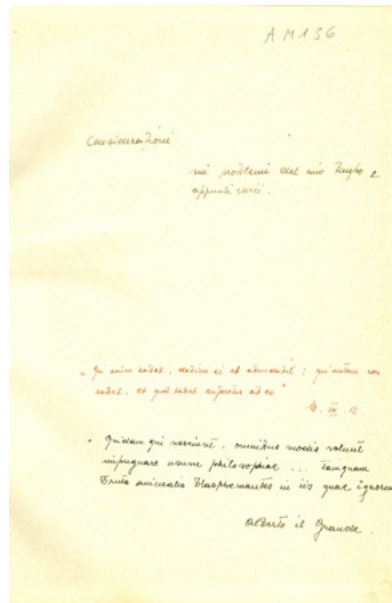 AM136
Considerazioni
sui problemi del mio tempo e
appunti varii.
" Qui enim habet, dabitur ei et abundabit : qui autem non
habet, et quod habet auferetur ab eo "
M. 12
" Quidam qui nesciunt, omnibus modis volunt
impugnare usum philosophiae ... tamquam
bruta animalia blasphemantes in iis quae ignorant
Alberto il Grande.